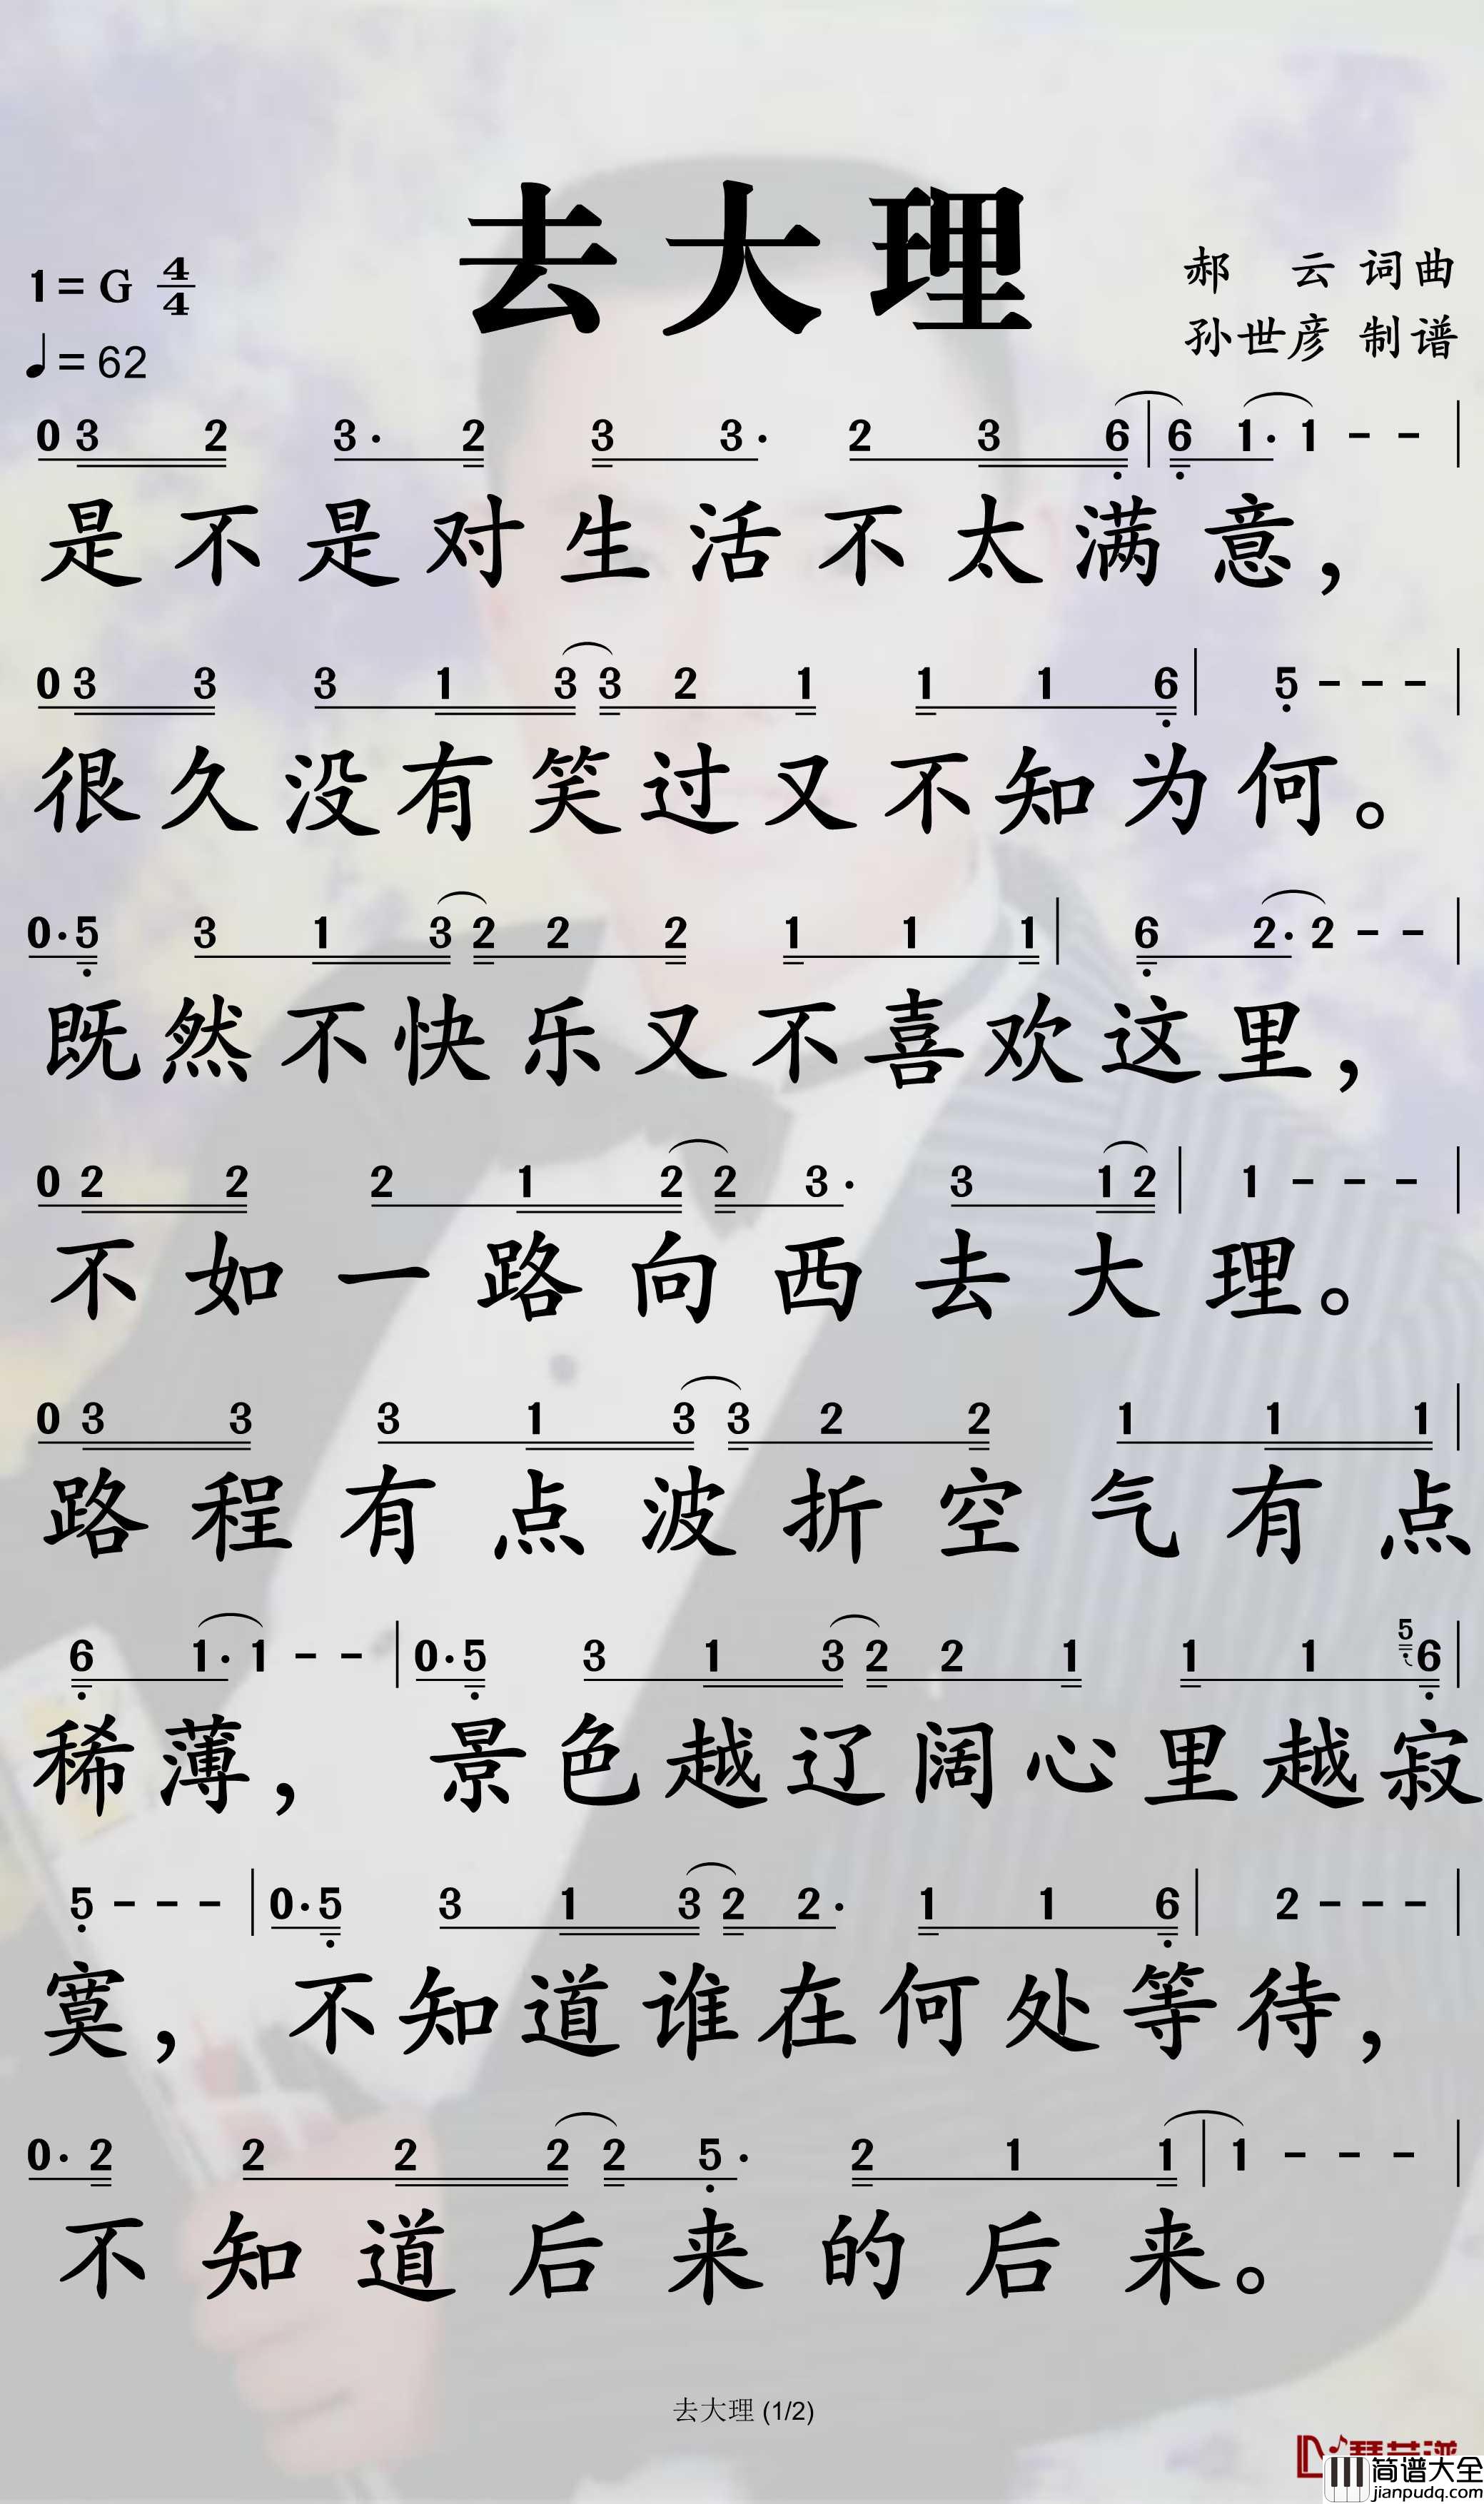 去大理
1=G 4/4
郝 云 词曲
♩=62
孙世彦 制谱
0 3 2 3· 2 3 3· 2 3 6 | 6 1· 1 - - |
是不是对生活不太满意，
0 3 3 3 1 3 3 2 1 1 1 6 | 5 - - - |
很久没有笑过又不知为何。
0· 5 3 1 3 2 2 2 1 1 1 | 6 2· 2 - - |
既然不快乐又不喜欢这里，
0 2 2 2 1 2 2 3· 3 1 2 | 1 - - - |
不如一路向西去大理。
0 3 3 3 1 3 3 2 2 1 1 1 |
路程有点波折空气有点
6 1· 1 - - | 0· 5 3 1 3 2 2 1 1 1 5 6 |
稀薄， 景色越辽阔心里越寂
5 - - - | 0· 5 3 1 3 2 2· 1 1 6 | 2 - - - |
寞，不知道谁在何处等待，
0· 2 2 2 2 2 5· 2 1 1 | 1 - - - |
不知道后来的后来。
去大理 (1/2)
简谱大全
jianpudq.com